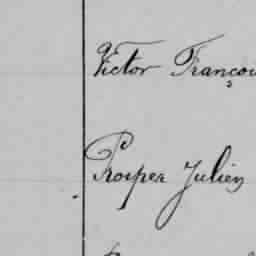 Victor Françoi
Prosper Julien